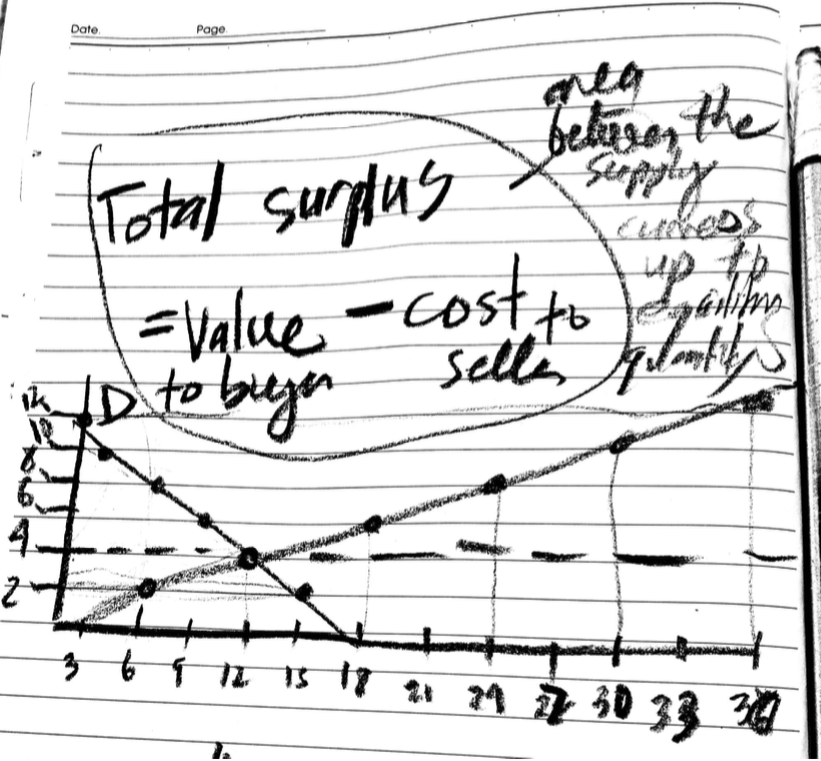 Date. Page.
area
between the
supply
curves
up to
quantity
Total surplus
= Value - cost to
to buyer seller
D
12
10
8
6
4
2
3 6 9 12 15 18 21 24 27 30 33 36